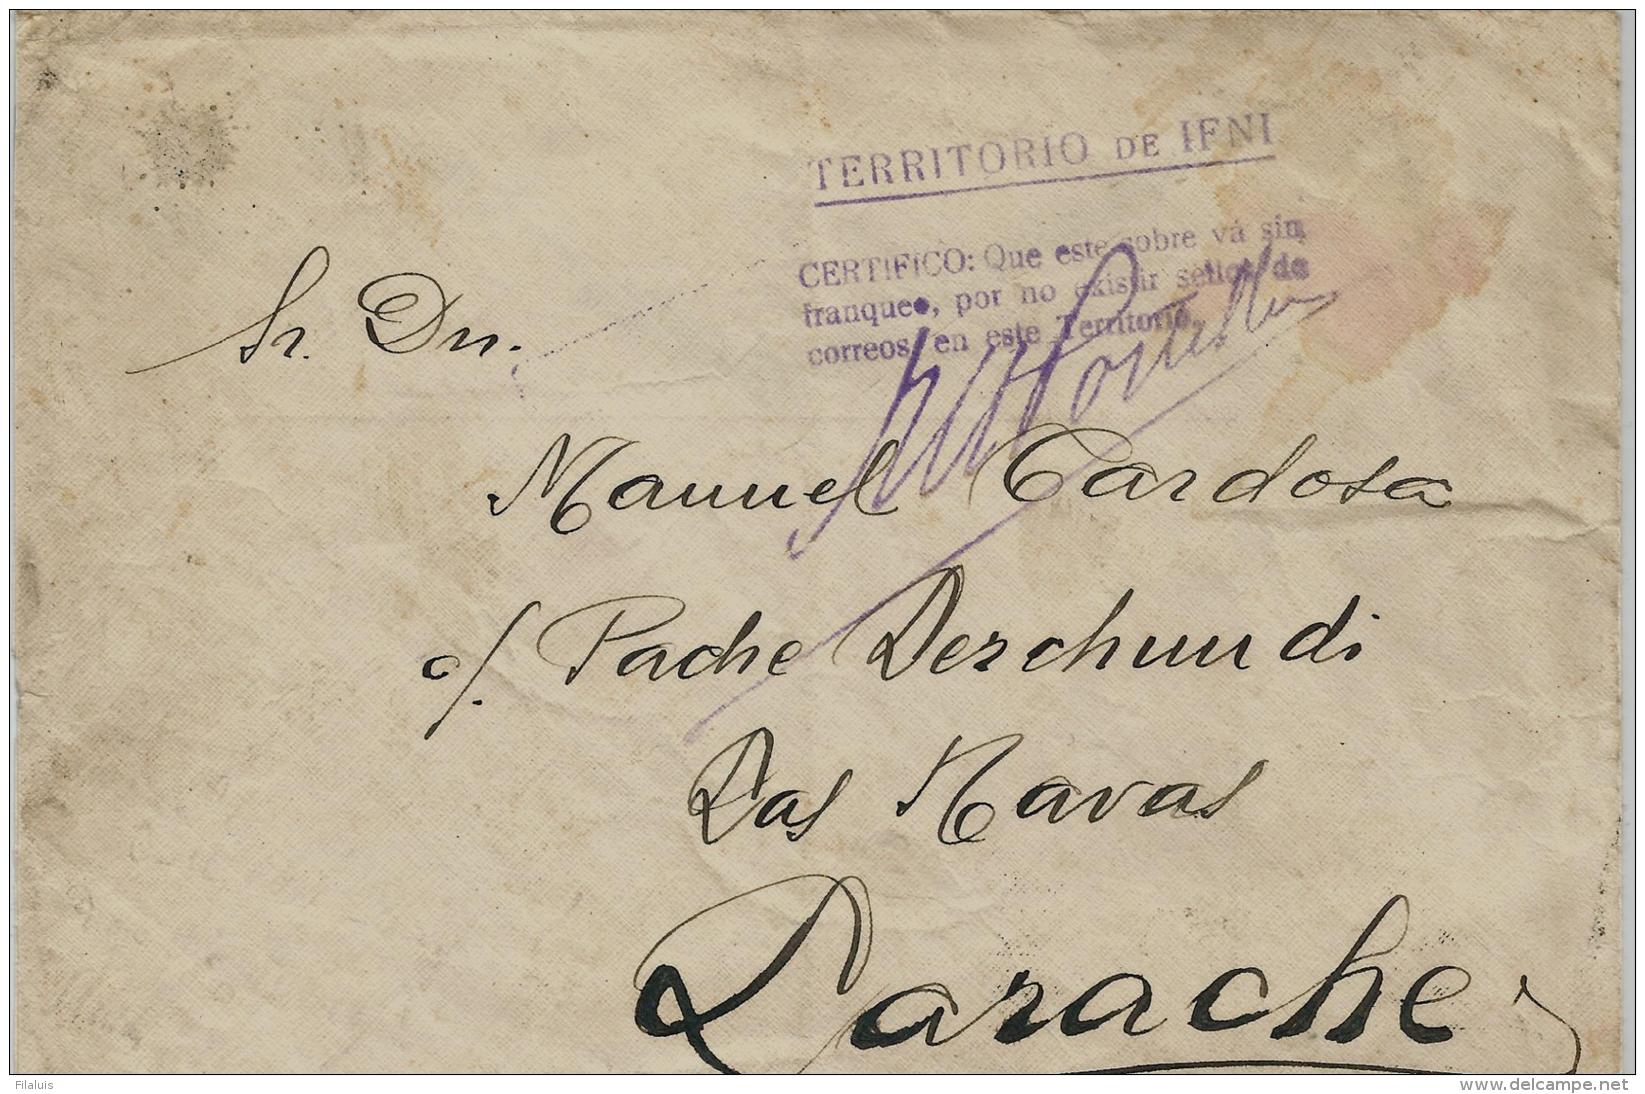 TERRITORIO DE IFNI
CERTIFICO: Que este sobre vá sin
franqueo, por no existir sellos de
correos, en este Territorio.
Sr. Dn.
Manuel Cardosa
c/. Pache Lerchundi
Las Navas
Larache
Filaluis
www.delcampe.net